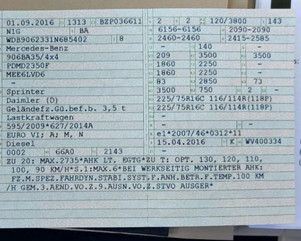 01.09.2016 1313 BZP036611 2 2 120/3800 143
NIG BA 6156-6156 2090-2090
WDB9062331N685402 8 2460-2460 2415-2585
Mercedes-Benz - 140 -
906BA35/4x4 209 3500 3500
PDMD2350F 1860 2250 -
MEE6LVD6 1860 2250 -
- 83 2850 73
Sprinter 3500 750 2 -
Daimler (D) 225/75R16C 116/114R(118P)
Geländefz.Gg.bef.b. 3,5 t 225/75R16C 116/114R(118P)
Lastkraftwagen -
595/2009*627/2014A -
EURO VI; A; M, N e1*2007/46*0312*11
Diesel 15.04.2016 K WV400334
0002 66A0 2143
ZU 20: MAX.2735*AHK LT. EGTG*ZU T: OPT. 130, 120, 110,
100, 90 KM/H*S.1:MAX.6*BEI WERKSEITIG MONTIERTER AHK:
FZ.M.SPEZ.FAHRDYN.STABI.SYST.F.ANH.BETR.F.TEMP.100 KM
/H GEM.3.AEND.VO.Z.9.AUSN.VO.Z.STVO AUSGER*